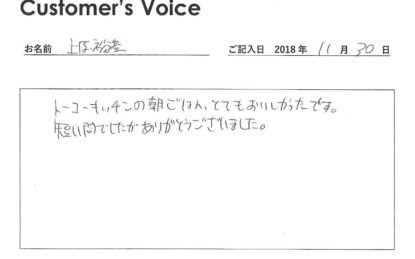 Customer's Voice
お名前 上原
ご記入日 2018年 11月 30日
トーコーキッチンの朝ごはん、とてもおいしかったです。
短い間でしたがありがとうございました。